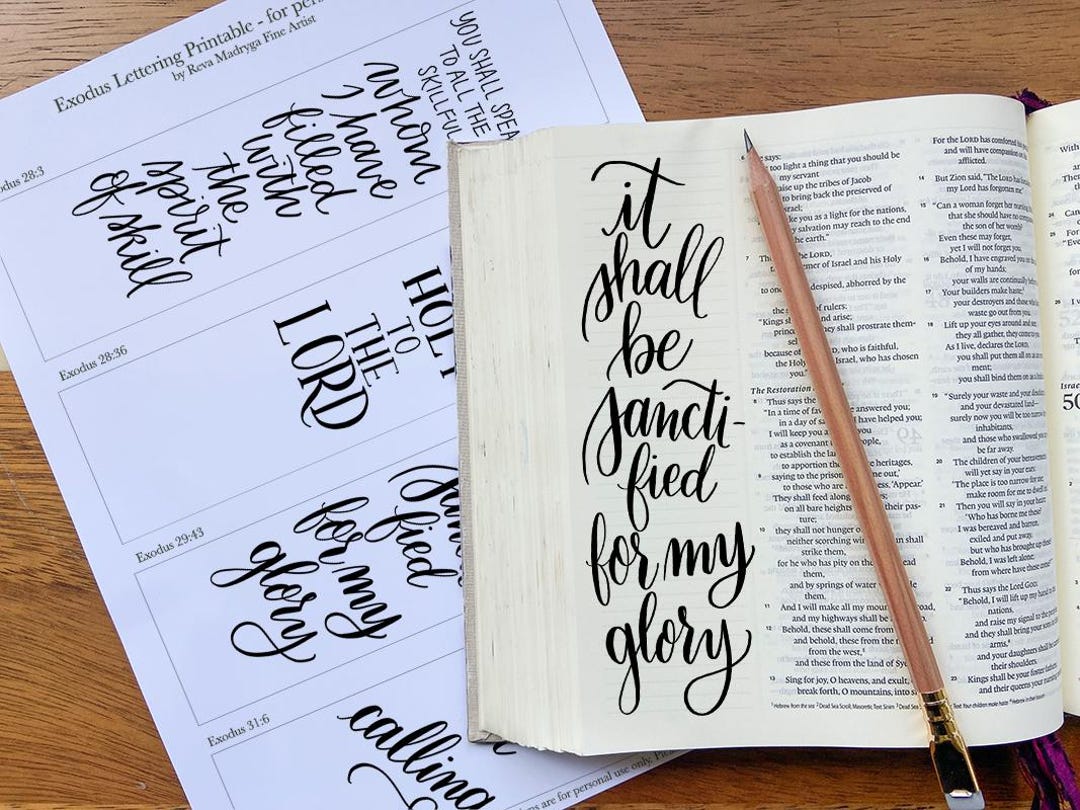 Exodus Lettering Printable - for
by Reva Madryga Fine Artist
28:3
YOU SHALL
TO ALL THE
SKILLFUL
whom
I have
filled
with
the
spirit
of skill
Exodus 28:36
HOLY
TO
THE
LORD
Exodus 29:43
fied
for my
glory
Exodus 31:6
calling
are for personal use only.
it
shall
be
sancti-
fied
for my
glory
says:
too light a thing that you should be
my servant
up the tribes of Jacob
to bring back the preserved of
you as a light for the nations,
salvation may reach to the end
the earth."
7 the LORD,
of Israel and his Holy
to despised, abhorred by the
of rulers:
"Kings and arise;
they shall prostrate them-
because of who is faithful,
the Holy of Israel, who has chosen
you."
The Restoration
8 Thus says the
"In a time of answered you;
in a day of I have helped you;
I will keep you you
as a covenant
to establish the
to apportion the heritages,
9 saying to the out,'
to those who are 'Appear.'
They shall feed along
on all bare heights their pas-
ture;
10 they shall not hunger
neither scorching shall
strike them,
for he who has pity on
them,
and by springs of water
them.
11 And I will make all my road,
and my highways shall be
12 Behold, these shall come from
and behold, these from the
from the west,
and these from the land of
13 Sing for joy, O heavens, and exult,
break forth, O mountains, into
For the LORD has comforted
and will have compassion
afflicted.
14 But Zion said, "The LORD has
my Lord has forgotten me."
15 "Can a woman forget her
that she should have no
the son of her womb?
Even these may forget,
yet I will not forget you.
16 Behold, I have engraved you
of my hands;
your walls are continually
17 Your builders make haste;
your destroyers and those who
waste go out from
18 Lift up your eyes around and
they all gather, they come
As I live, declares the LORD,
you shall put them all on
ment;
you shall bind them on
19 "Surely your waste and your
and your devastated land—
surely now you will be too narrow
inhabitants,
and those who swallowed
be far away.
20 The children of your bereavement
will yet say in your ears:
'The place is too narrow for me;
make room for me to dwell
21 Then you will say in your heart:
'Who has borne me these?
I was bereaved and barren,
exiled and put away,
but who has brought up
Behold, I was left alone;
from where have these
22 Thus says the Lord GOD:
"Behold, I will lift up my hand
nations,
and raise my signal to the
and they shall bring your
arms,
and your daughters shall
their shoulders.
23 Kings shall be your foster fathers,
and their queens your